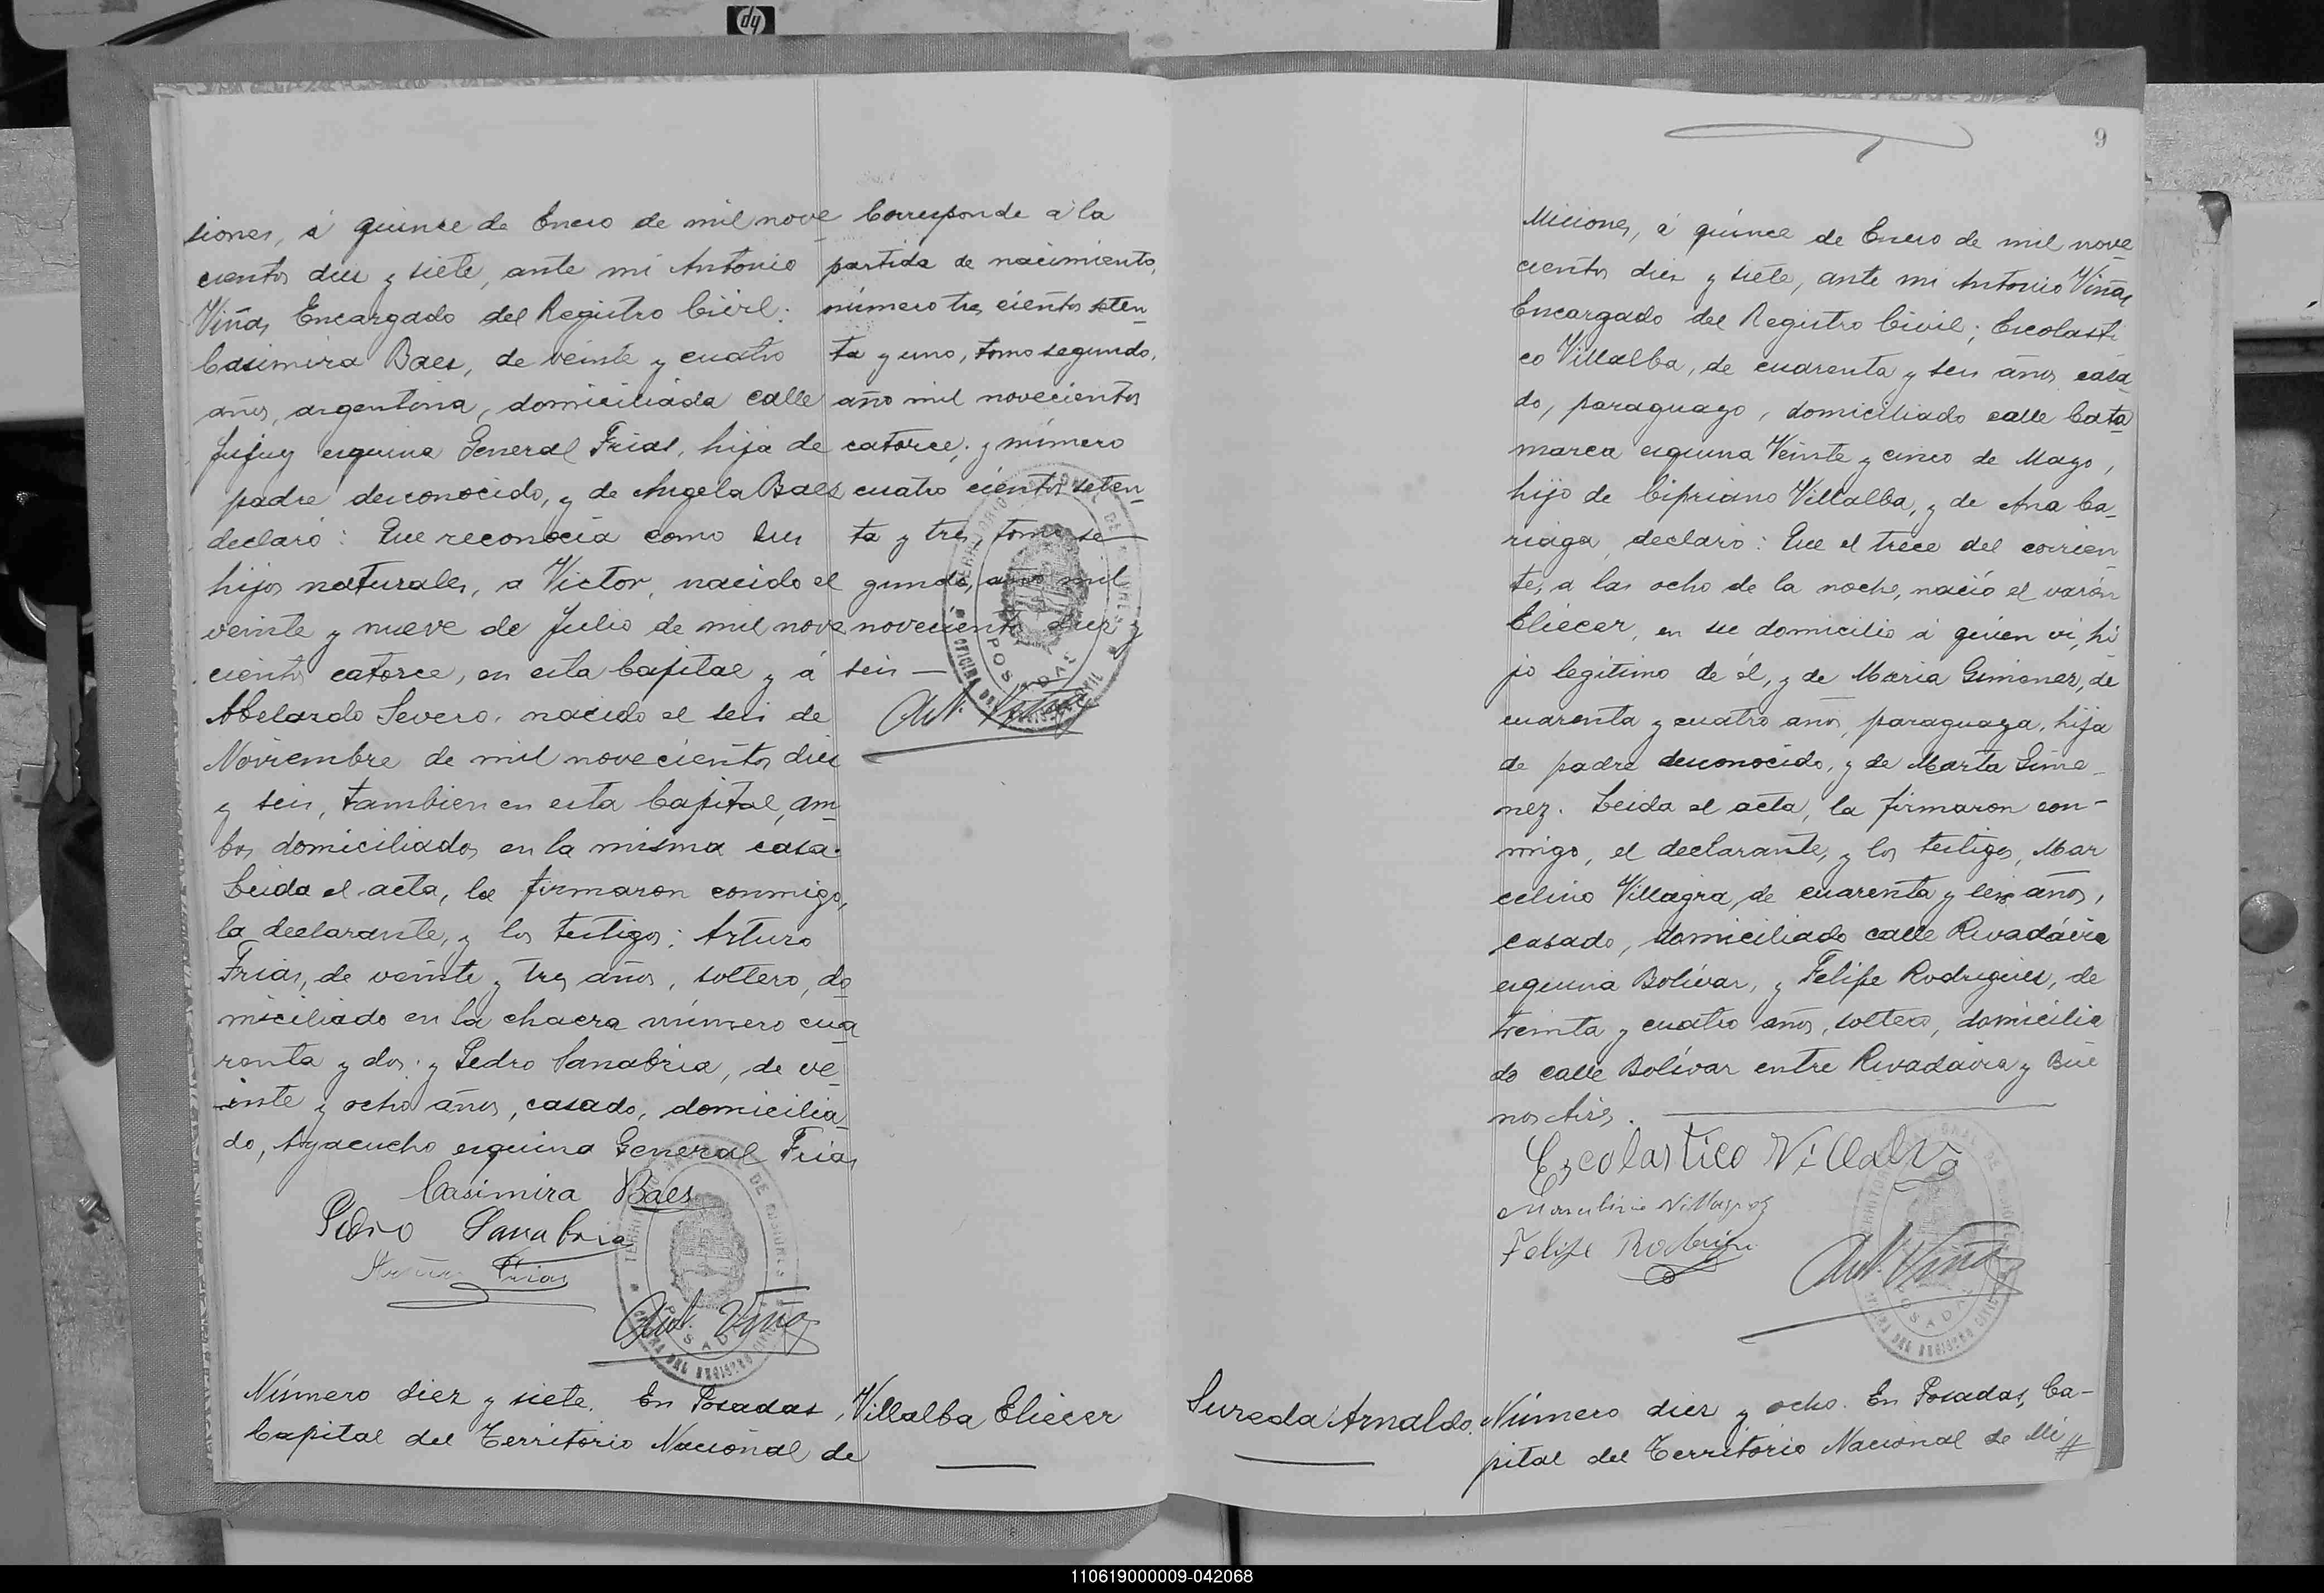 siones, á quince de Enero de mil nove
cientos diez y siete, ante mi Antonio
Viñas Encargado del Registro Civil:
Casimira Baes, de veinte y cuatro
años, argentina, domiciliada calle
Jujuy esquina General Frias, hija de
padre desconocido, y de Angela Baes
declaró: Que reconocía como sus
hijos naturales, a Victor, nacido el
veinte y nueve de Julio de mil nove
cientos catorce, en esta Capital y á
Abelardo Severo, nacido el seis de
Noviembre de mil novecientos diez
y seis, tambien en esta Capital, am
bos domiciliados en la misma casa.
Leida el acta, la firmaron conmigo,
la declarante, y los testigos: Arturo
Frias, de veinte y tres años, soltero, do
miciliado en la chacra número cua
renta y dos; y Pedro Sanabria, de ve
inte y ocho años, casado, domicilia
do, Ayacucho esquina General Frias
Casimira Baes
Pedro Sanabria
Arturo Frias
Ant. Viñas
Corresponde á la
partida de nacimiento,
número tres cientos seten-
ta y uno, tomo segundo,
año mil novecientos
catorce; y número
cuatro cientos seten-
ta y tres, tomo se
gundo, año mil
novecientos diez y
seis —
Ant. Viñas
TERRITORIO NACIONAL DE MISIONES
OFICINA DEL REGISTRO CIVIL
POSADAS
Número diez y siete. En Posadas,
Capital del Territorio Nacional de
Villalba Eliecer
9
Misiones, á quince de Enero de mil nove
cientos diez y siete, ante mi Antonio Viñas
Encargado del Registro Civil; Escolasti
co Villalba, de cuarenta y seis años, casa
do, paraguayo, domiciliado calle Cata
marca esquina Veinte y cinco de Mayo,
hijo de Cipriano Villalba, y de Ana Ca-
riaga, declaró: Que el trece del corrien
te, a las ocho de la noche, nació el varón
Eliécer, en su domicilio á quien vi, hi
jo legitimo de él, y de Maria Gimenez, de
cuarenta y cuatro años, paraguaya, hija
de padre desconocido, y de Marta Gime-
nez. Leida el acta, la firmaron con-
migo, el declarante, y los testigos, Mar
celino Villagra, de cuarenta y seis años,
casado, domiciliado calle Rivadávia
esquina Bolívar, y Felipe Rodriguez, de
treinta y cuatro años, soltero, domicilia
do calle Bolívar entre Rivadávia y Bue
nos Aires.
Escolastico Villalva
Marcelino Villagra
Felipe Rodriguez
Ant. Viñas
TERRITORIO NACIONAL DE MISIONES
OFICINA DEL REGISTRO CIVIL
POSADAS
Sureda Arnaldo.
Número diez y ocho. En Posadas, Ca-
pital del Territorio Nacional de Mi
110619000009-042068